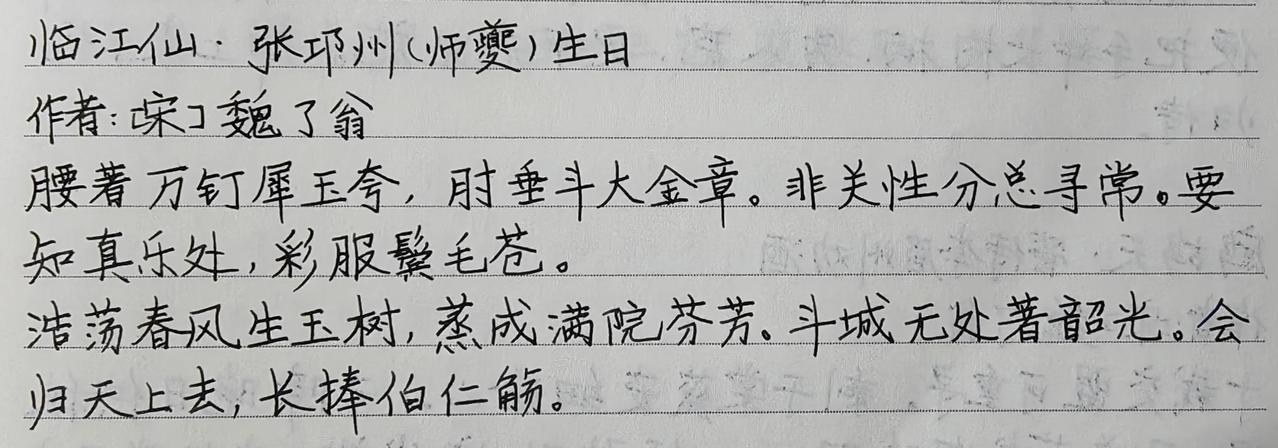 临江仙·张邛州(师夔)生日
作者:[宋]魏了翁
腰著万钉犀玉夸,肘垂斗大金章。非关性分总寻常。要
知真乐处,彩服鬓毛苍。
浩荡春风生玉树,蒸成满院芬芳。斗城无处著韶光。会
归天上去,长捧伯仁觞。